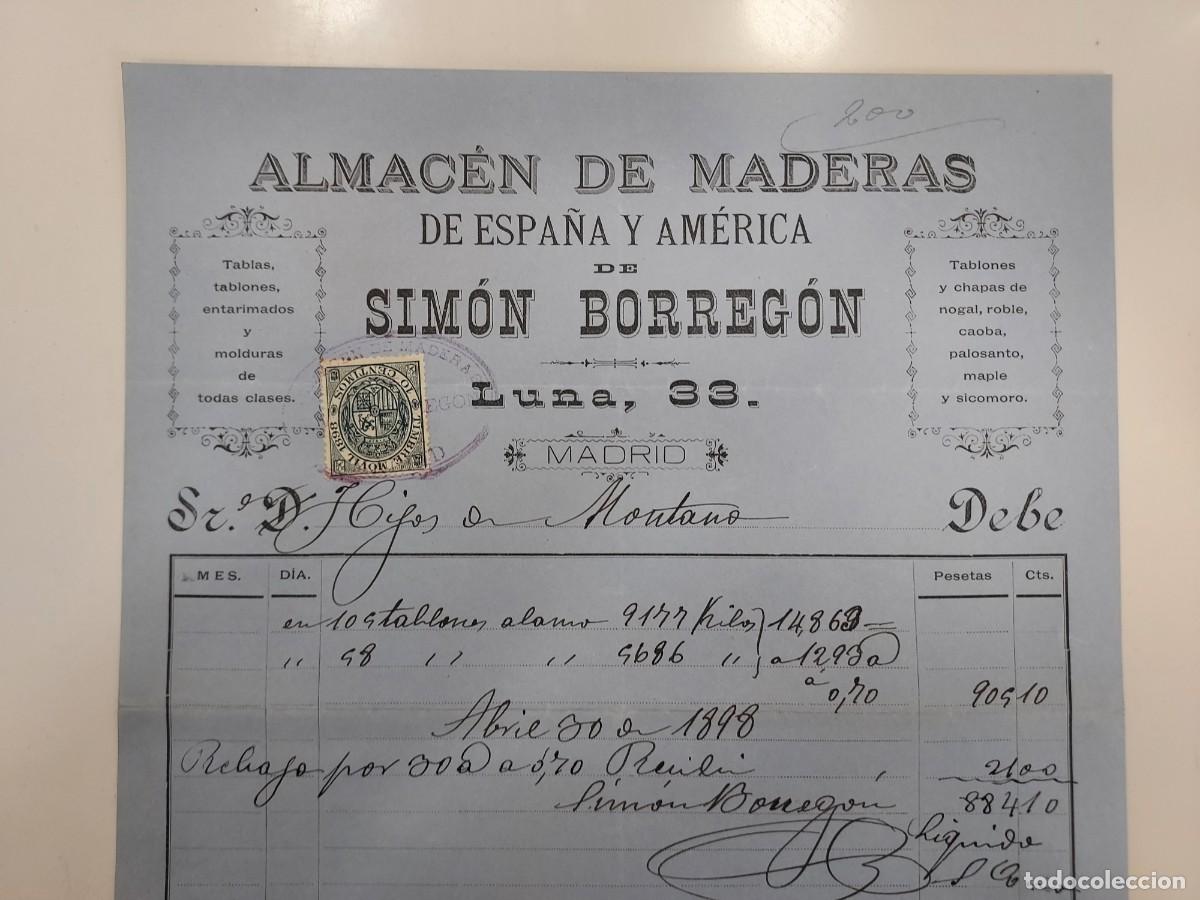 200
ALMACÉN DE MADERAS
DE ESPAÑA Y AMÉRICA
DE
SIMÓN BORREGÓN
Luna, 33.
MADRID
Tablas,
tablones,
entarimados
y
molduras
de
todas clases.
Tablones
y chapas de
nogal, roble,
caoba,
palosanto,
maple
y sicomoro.
10 CENTIMOS
TIMBRE MÓVIL 1898
DE MADERAS
Sr.es D. Hijos de Montano Debe
MES. DÍA. Pesetas Cts.
en 105 tablones alamo 9177 Kilos 14,863 =
,, 58 ,, ,, 5686 ,, a 1293 @
a 0,70 905 10
Abril 30 de 1898
Rebaja por 30 @ a 0,70 Recibí 21 00
Simón Borregon 884 10
Liquido
todocoleccion